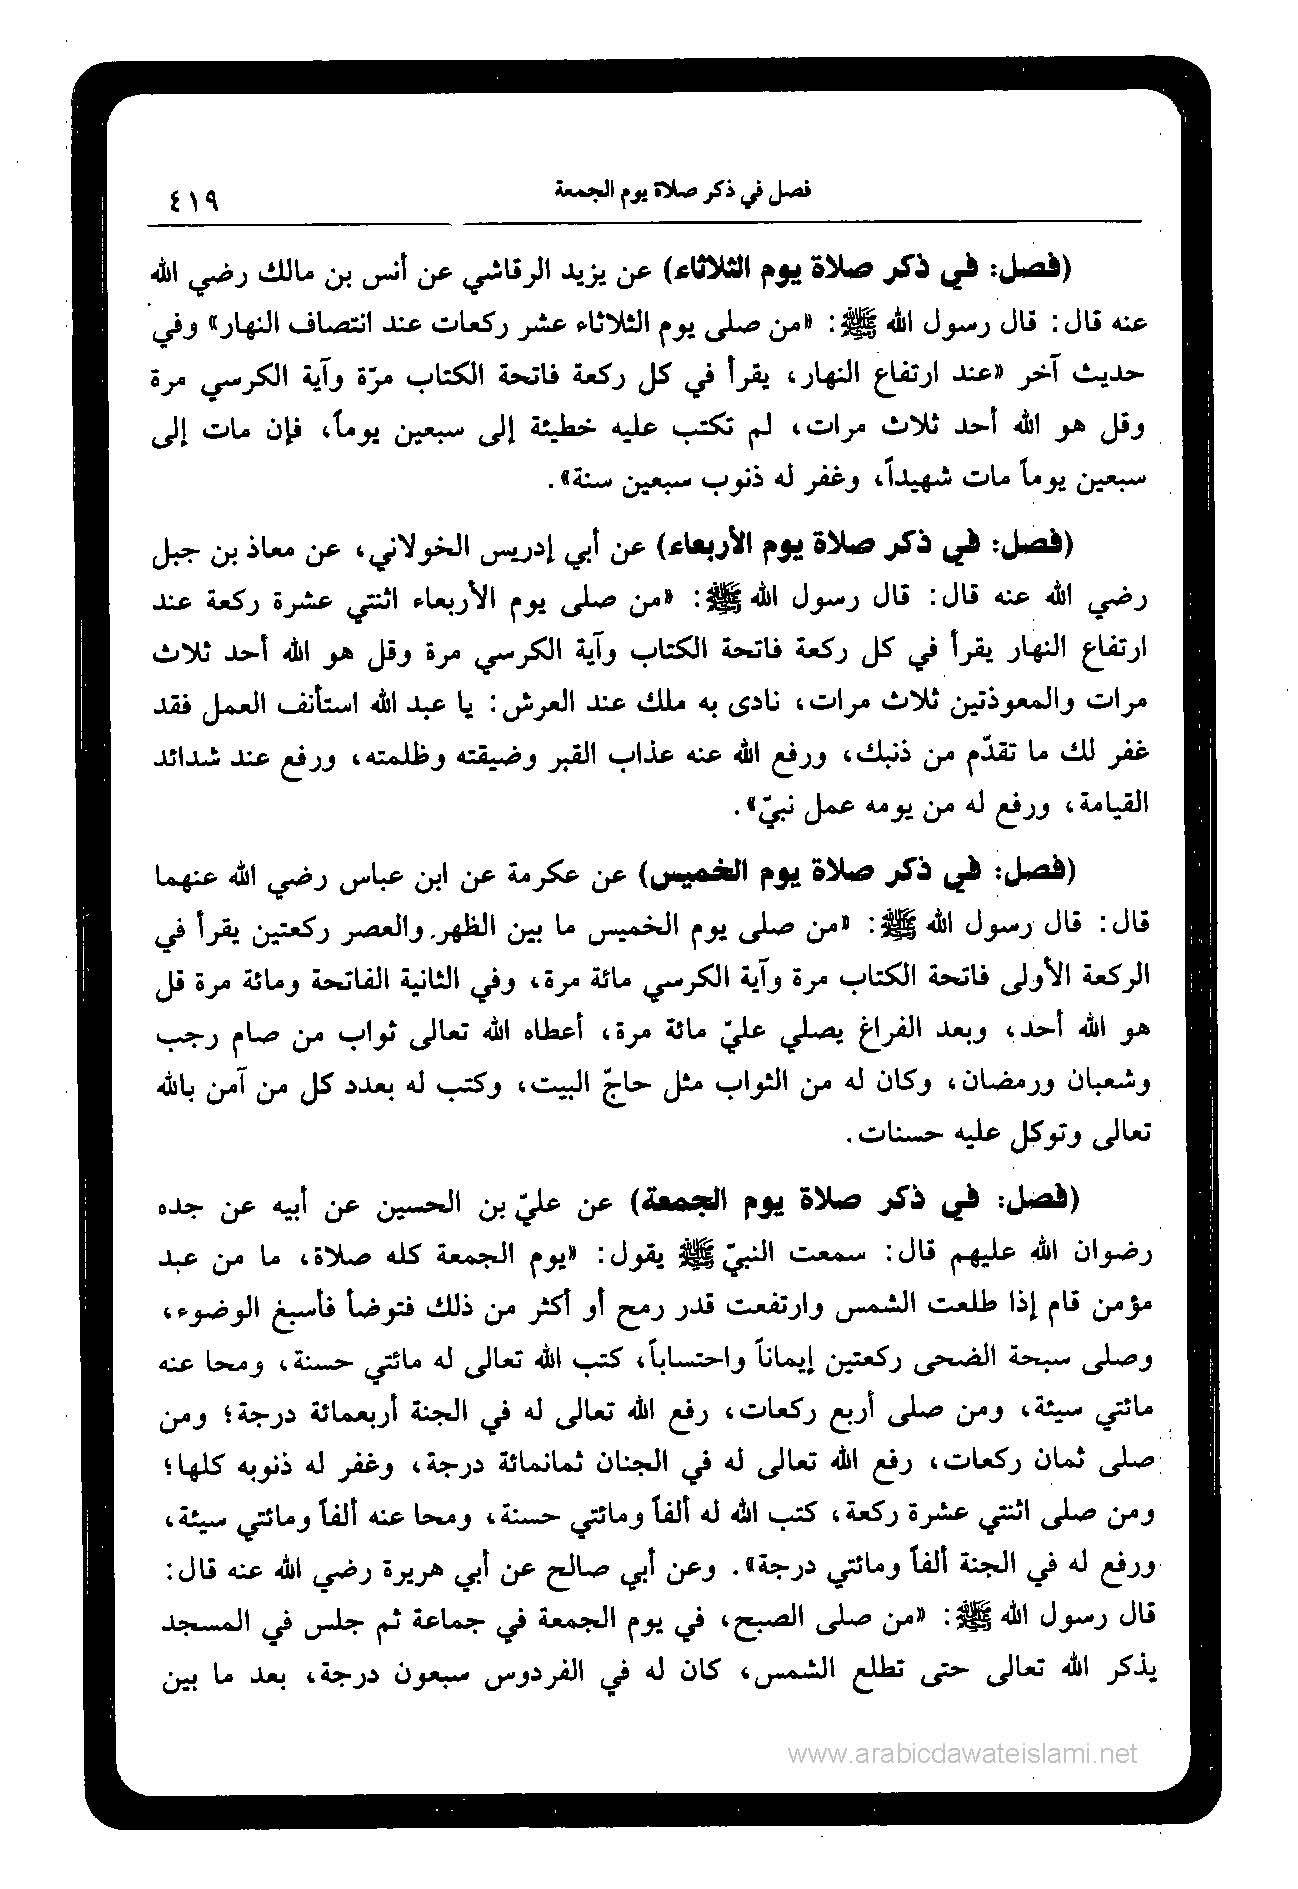 فصل في ذكر صلاة يوم الجمعة ٤١٩
(فصل: في ذكر صلاة يوم الثلاثاء) عن يزيد الرقاشي عن أنس بن مالك رضي الله
عنه قال: قال رسول الله ﷺ: «من صلى يوم الثلاثاء عشر ركعات عند انتصاف النهار» وفي
حديث آخر «عند ارتفاع النهار، يقرأ في كل ركعة فاتحة الكتاب مرّة وآية الكرسي مرة
وقل هو الله أحد ثلاث مرات، لم تكتب عليه خطيئة إلى سبعين يوماً، فإن مات إلى
سبعين يوماً مات شهيداً، وغفر له ذنوب سبعين سنة».
(فصل: في ذكر صلاة يوم الأربعاء) عن أبي إدريس الخولاني، عن معاذ بن جبل
رضي الله عنه قال: قال رسول الله ﷺ: «من صلى يوم الأربعاء اثنتي عشرة ركعة عند
ارتفاع النهار يقرأ في كل ركعة فاتحة الكتاب وآية الكرسي مرة وقل هو الله أحد ثلاث
مرات والمعوذتين ثلاث مرات، نادى به ملك عند العرش: يا عبد الله استأنف العمل فقد
غفر لك ما تقدّم من ذنبك، ورفع الله عنه عذاب القبر وضيقته وظلمته، ورفع عند شدائد
القيامة، ورفع له من يومه عمل نبيّ».
(فصل: في ذكر صلاة يوم الخميس) عن عكرمة عن ابن عباس رضي الله عنهما
قال: قال رسول الله ﷺ: «من صلى يوم الخميس ما بين الظهر والعصر ركعتين يقرأ في
الركعة الأولى فاتحة الكتاب مرة وآية الكرسي مائة مرة، وفي الثانية الفاتحة ومائة مرة قل
هو الله أحد، وبعد الفراغ يصلي عليّ مائة مرة، أعطاه الله تعالى ثواب من صام رجب
وشعبان ورمضان، وكان له من الثواب مثل حاجّ البيت، وكتب له بعدد كل من آمن بالله
تعالى وتوكل عليه حسنات.
(فصل: في ذكر صلاة يوم الجمعة) عن عليّ بن الحسين عن أبيه عن جده
رضوان الله عليهم قال: سمعت النبيّ ﷺ يقول: «يوم الجمعة كله صلاة، ما من عبد
مؤمن قام إذا طلعت الشمس وارتفعت قدر رمح أو أكثر من ذلك فتوضأ فأسبغ الوضوء،
وصلى سبحة الضحى ركعتين إيماناً واحتساباً، كتب الله تعالى له مائتي حسنة، ومحا عنه
مائتي سيئة، ومن صلى أربع ركعات، رفع الله تعالى له في الجنة أربعمائة درجة؛ ومن
صلى ثمان ركعات، رفع الله تعالى له في الجنان ثمانمائة درجة، وغفر له ذنوبه كلها؛
ومن صلى اثنتي عشرة ركعة، كتب الله له ألفاً ومائتي حسنة، ومحا عنه ألفاً ومائتي سيئة،
ورفع له في الجنة ألفاً ومائتي درجة». وعن أبي صالح عن أبي هريرة رضي الله عنه قال:
قال رسول الله ﷺ: «من صلى الصبح، في يوم الجمعة في جماعة ثم جلس في المسجد
يذكر الله تعالى حتى تطلع الشمس، كان له في الفردوس سبعون درجة، بعد ما بين
www.arabicdawateislami.net